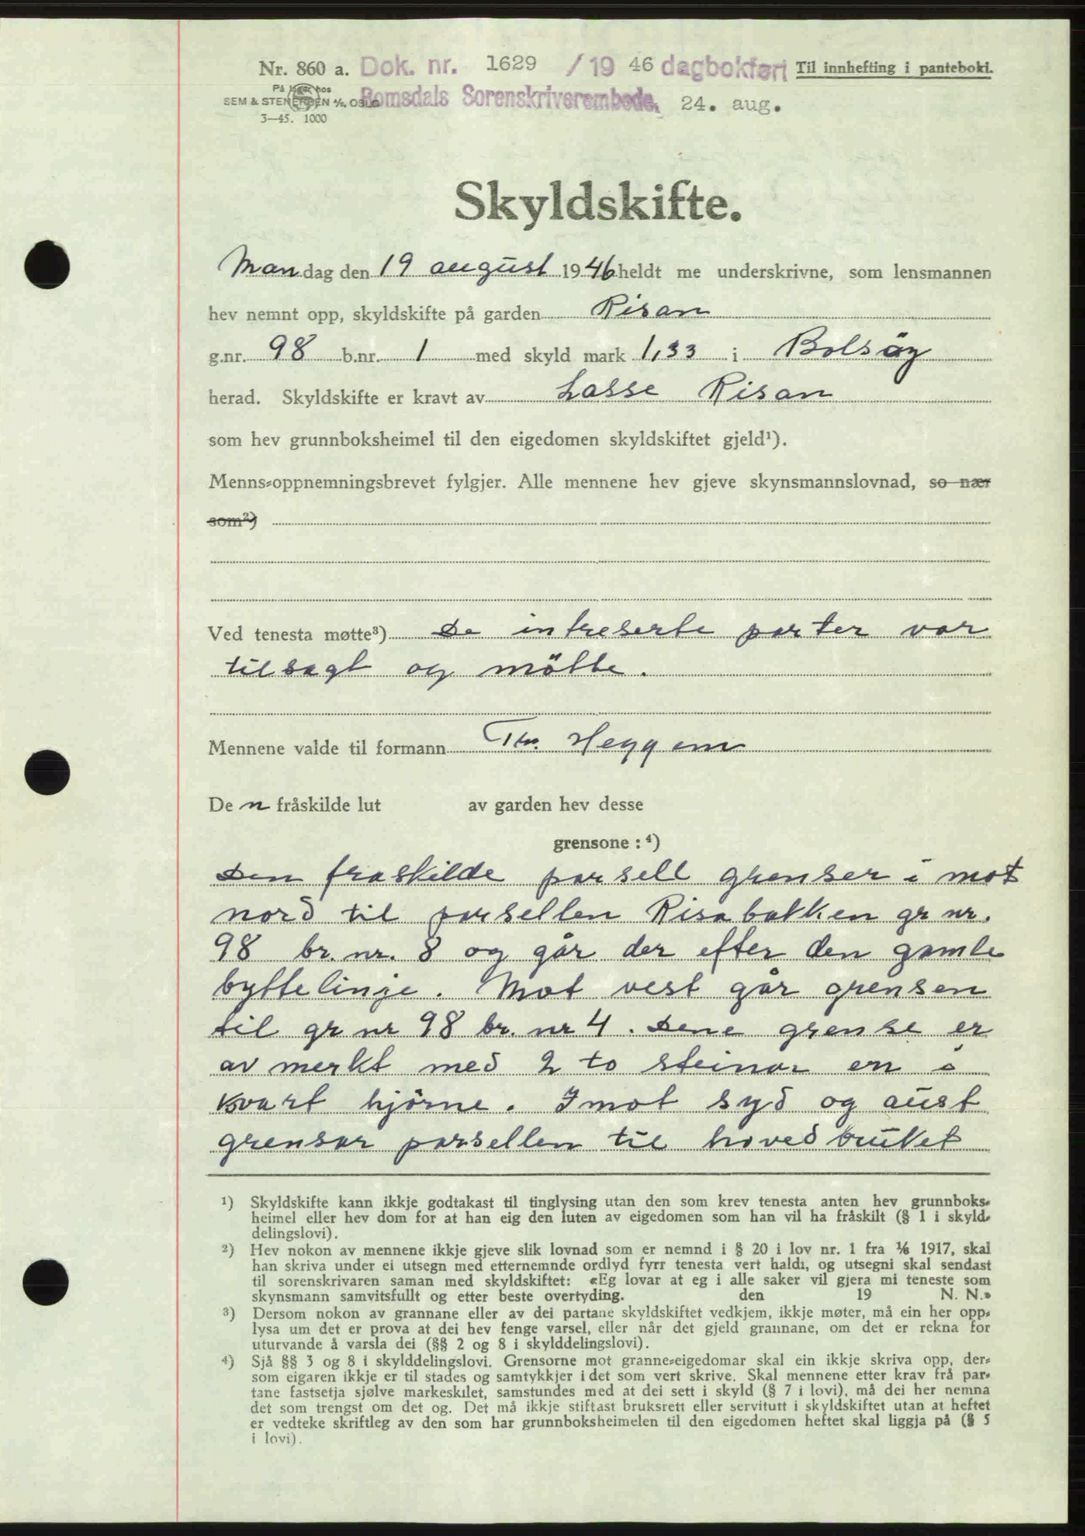 Nr. 860 a. Dok. nr. 1629 /19 46 dagbokført Til innhefting i pantebok.
På lager hos
SEM & STENERSEN A/S, OSLO Romsdals Sorenskriverembede, 24. aug.
3—45. 1000
Skyldskifte.
Mandag den 19 august 1946 heldt me underskrivne, som lensmannen
hev nemnt opp, skyldskifte på garden Risan
g.nr. 98 b.nr. 1 med skyld mark 1,33 i Bolsöy
herad. Skyldskifte er kravt av Lasse Risan
som hev grunnboksheimel til den eigedomen skyldskiftet gjeld¹).
Menns-oppnemningsbrevet fylgjer. Alle mennene hev gjeve skynsmannslovnad, so nær
som²)
Ved tenesta møtte³) De intreserte parter var
tilsagt og mötte.
Mennene valde til formann Th. Heggem
De n fråskilde lut av garden hev desse
grensone : ⁴)
Den fraskilde parsell grenser i mot
nord til parsellen Risabakken gr nr.
98 br. nr. 8 og går der efter den gamle
byttelinje. Mot vest går grensen
til gr nr 98 br. nr 4. Dene grense er
av merkt med 2 to steinar en i
kvart hjörne. Imot syd og aust
grensar parsellen til hovedbruket
¹) Skyldskifte kann ikkje godtakast til tinglysing utan den som krev tenesta anten hev grunnboks-
heimel eller hev dom for at han eig den luten av eigedomen som han vil ha fråskilt (§ 1 i skyld-
delingslovi).
²) Hev nokon av mennene ikkje gjeve slik lovnad som er nemnd i § 20 i lov nr. 1 fra 1/6 1917, skal
han skriva under ei utsegn med etternemnde ordlyd fyrr tenesta vert haldi, og utsegni skal sendast
til sorenskrivaren saman med skyldskiftet: «Eg lovar at eg i alle saker vil gjera mi teneste som
skynsmann samvitsfullt og etter beste overtyding. den 19 N. N.»
³) Dersom nokon av grannane eller av dei partane skyldskiftet vedkjem, ikkje møter, må ein her opp-
lysa um det er prova at dei hev fenge varsel, eller når det gjeld grannane, om det er rekna for
uturvande å varsla dei (§§ 2 og 8 i skylddelingslovi).
⁴) Sjå §§ 3 og 8 i skylddelingslovi. Grensorne mot granne-eigedomar skal ein ikkje skriva opp, der-
som eigaren ikkje er til stades og samtykkjer i det som vert skrive. Skal mennene etter krav frå par-
tane fastsetja sjølve markeskilet, samstundes med at dei sett i skyld (§ 7 i lovi), må dei her nemna
det som trengst om det og. Det må ikkje stiftast bruksrett eller servitutt i skyldskiftet utan at heftet
er vedteke skriftleg av den som har grunnboksheimelen til den eigedomen heftet skal liggja på (§ 5
i lovi).